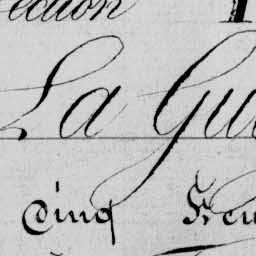 ection
La Gu
Cinq Feu